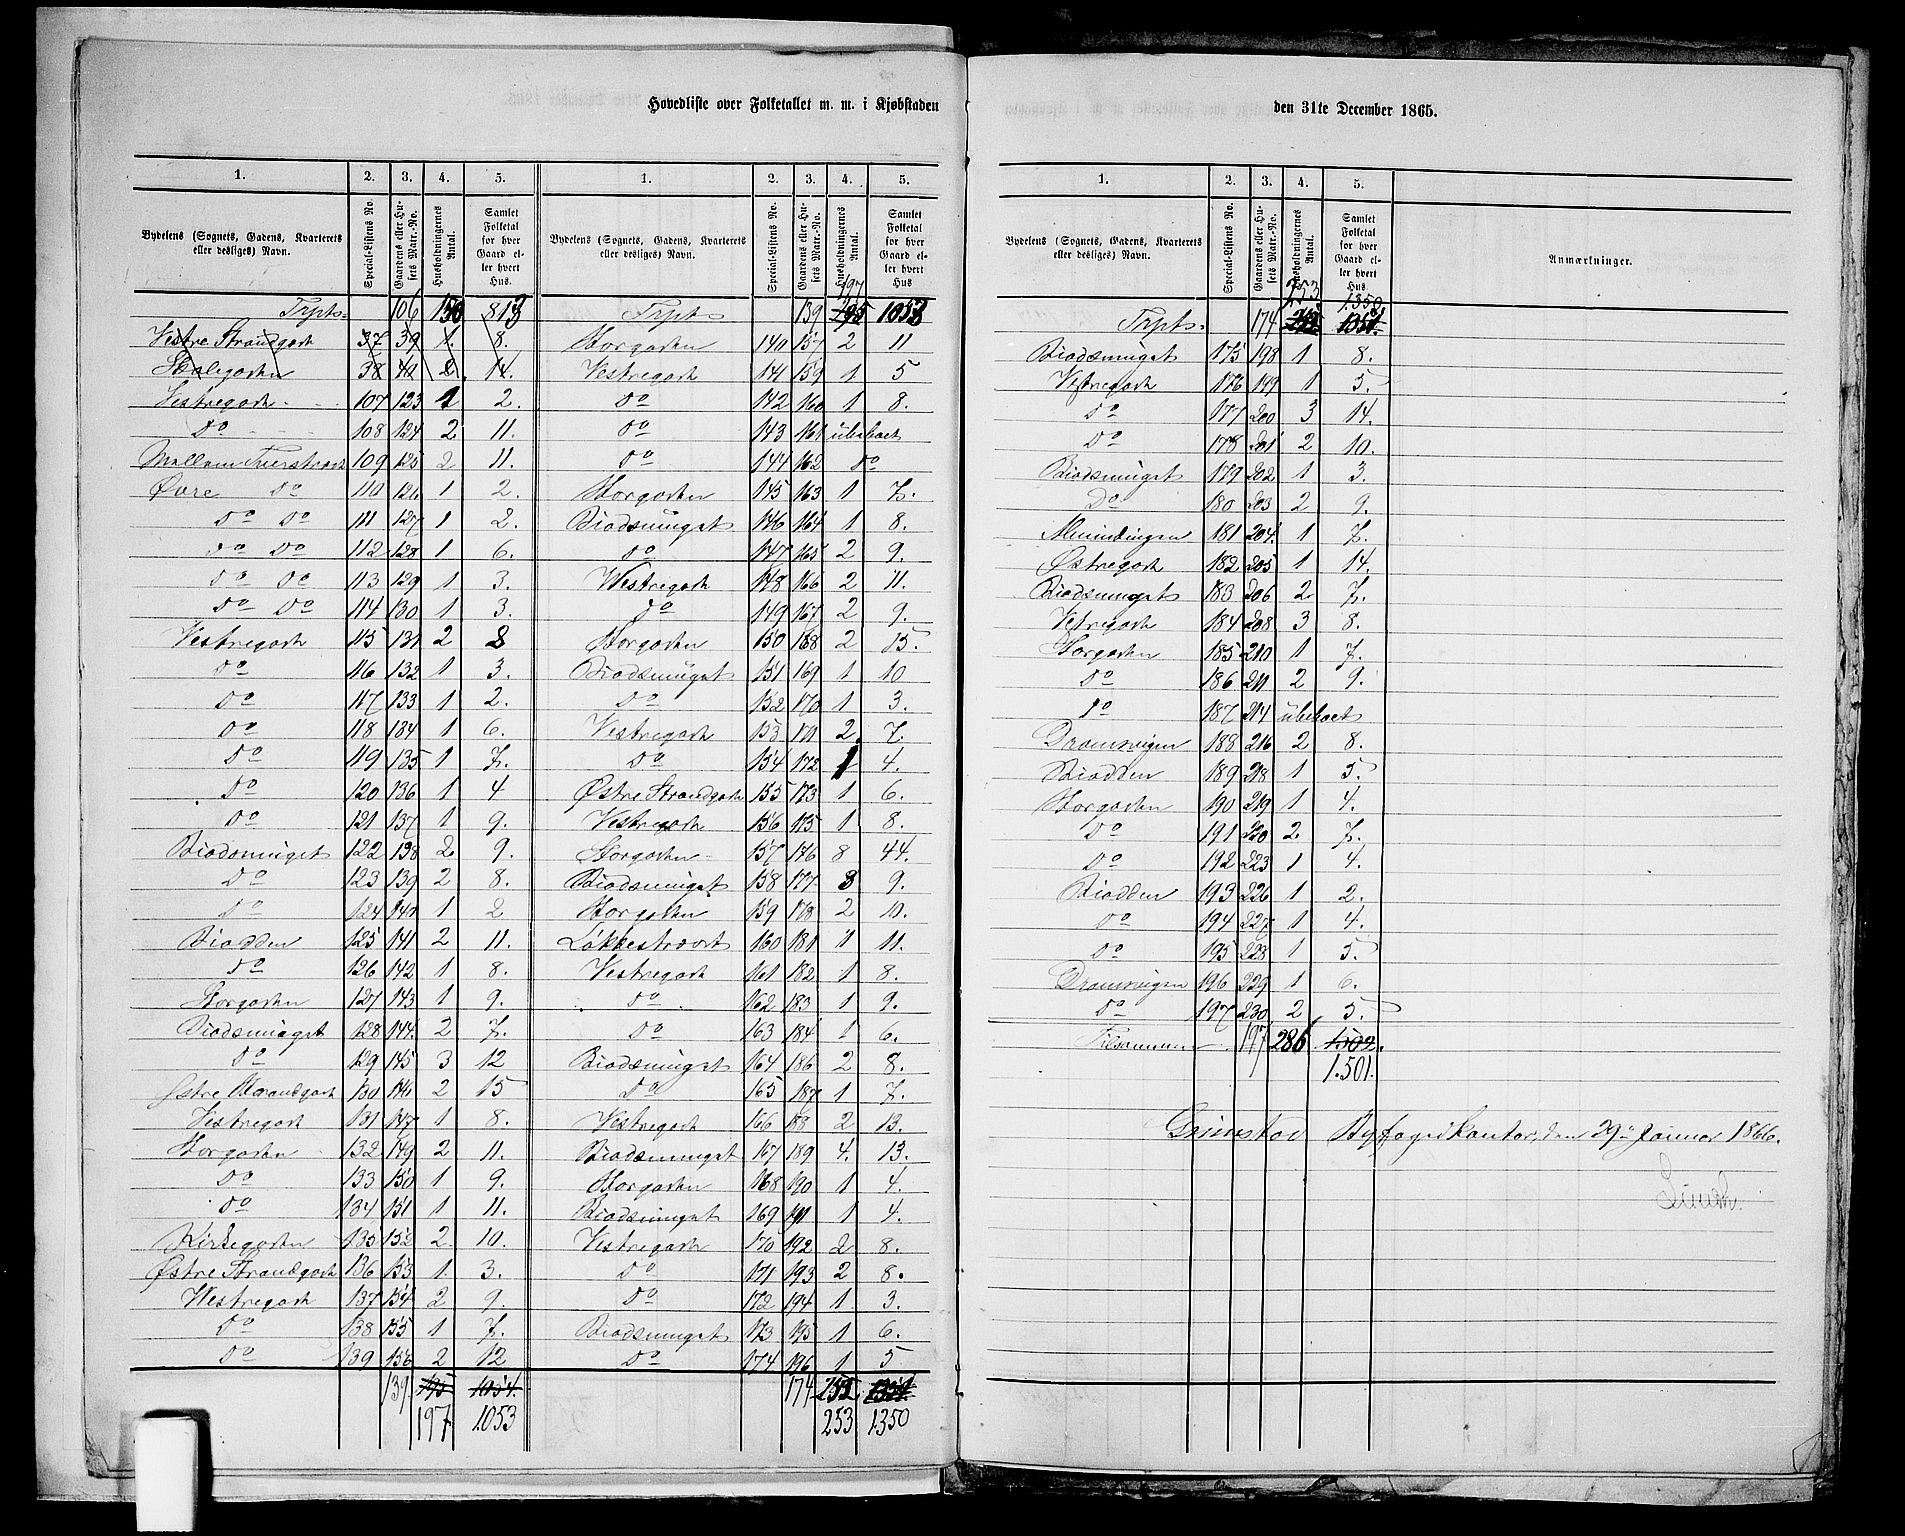 Hovedliste over Folketallet m. m. i Kjøbstaden den 31te December 1865.
1. 2. 3. 4. 5. 1. 2. 3. 4. 5.
Bydelens (Sognets, Gadens, Kvarterets eller desliges) Navn. Special-Listens No. Gaardens eller Husets Matr.-No. Husholdningernes Antal. Samlet Folketal for hver Gaard eller hvert Hus. Bydelens (Sognets, Gadens, Kvarterets eller desliges) Navn. Special-Listens No. Gaardens eller Husets Matr.-No. Husholdningernes Antal. Samlet Folketal for hver Gaard eller hvert Hus
197
Trpt. 106 150 813 Trpt. 139 195 1053
Vestre Strandgade 37 39 1. 8. Storgaden 140 157 2 11
Skolegaden 38 40 2. 14. Vestregade 141 159 1 5
Vestregade 107 123 1 2. Do 142 160 1 8.
Do 108 124 2 11. Do 143 161 ubeboet
Mellem 109 125 2 11. Do 144 162 Do
Øvre Do 110 126 1 2. Storgaden 145 163 1 7.
Do Do 111 127 1 2. Biodsmuget 146 164 1 8.
Do Do 112 128 1 6. Do 147 165 2 9.
Do Do 113 129 1 3. Vestregade 148 166 2 11.
Do Do 114 130 1 3. Do 149 167 2 9.
Vestregade 115 131 2 8 Storgaden 150 168 2 15.
Do 116 132 1 3. Biodsmuget 151 169 1 10
Do 117 133 1 2. Do 152 170 1 3.
Do 118 134 1 6. Vestregade 153 171 2. 7.
Do 119 135 1 7. Do 154 172 1 4.
Do 120 136 1 4 Østre Strandgade 155 173 1 6.
Do 121 137 1 9. Vestregade 156 175 1 8.
Biodsmuget 122 138 2. 9. Storgaden 157 176 8 44.
Do 123 139 2 8. Biodsmuget 158 177 3 9.
Do 124 140 1 2 Storgaden 159 178 2 10.
Biodden 125 141 2 11. Løkkestrædet 160 181 1 11.
Do 126 142 1 8. Vestregade 161 182 1 8.
Storgaden 127 143 1 9. Do 162 183 1 9.
Biodsmuget 128 144 2 7. Do 163 184 1 6.
Do 129 145 3 12 Biodsmuget 164 186 2 8.
Østre Strandgade 130 146 2 15 Do 165 187 1 7.
Vestregade 131 147 1 8. Vestregade 166 188 2 13.
Storgaden 132 149 2 11. Biodsmuget 167 189 4. 13.
Do 133 150 1 9. Storgaden 168 190 1 4.
Do 134 151 1 11. Biodsmuget 169 191 1 4.
Kirkegaden 135 152 2 10. Vestregade 170 192 2 8.
Østre Strandgade 136 153 1. 3. Do 171 193 2 8.
Vestregade 137 154 2 9. Do 172 194 1 3.
Do 138 155 1 7. Biodsmuget 173 195 1 6.
Do 139 156 2 12 Do 174 196 1 5
139. 195 1054. 174 252 1351.
197 1053 253 1350
1. 2. 3. 4. 5.
Bydelens (Sognets, Gadens, Kvarterets eller desliges) Navn. Special-Listens No. Gaardens eller Husets Matr.-No. Husholdningernes Antal. Samlet Folketal for hver Gaard eller hvert Hus Anmærkninger.
253. 1350.
Trpt. 174 1351.
Biodsmuget 175 198 1 8.
Vestregade 176 199 1 5.
Do 177 200 3 14.
Do 178 201 2 10.
Biodsmuget 179 202 1 3.
Do 180 203 2 9.
Almindingen 181 204. 1 7.
Østregade 182 205 1 14.
Biodsmuget 183 206 2 7.
Vetregade 184 208 3 8.
Storgaden 185 210 1 7.
Do 186 211 2 9.
Do 187 214 ubeboet
Dromvigen 188 216 2 8.
Biodden 189 218 1 5.
Storgaden 190 219 1 4.
Do 191 220 2. 7.
Do 192 223 1 4.
Biodden 193 226 1 2.
Do 194 227 1 4.
Do 195 228 1 5.
Dromvigen 196 229 1 6.
Do 197 230. 2 5.
Tilsammen 197 286 1502.
1.501.
Grimstad Byfogedkontor, den 29de Januar 1866.